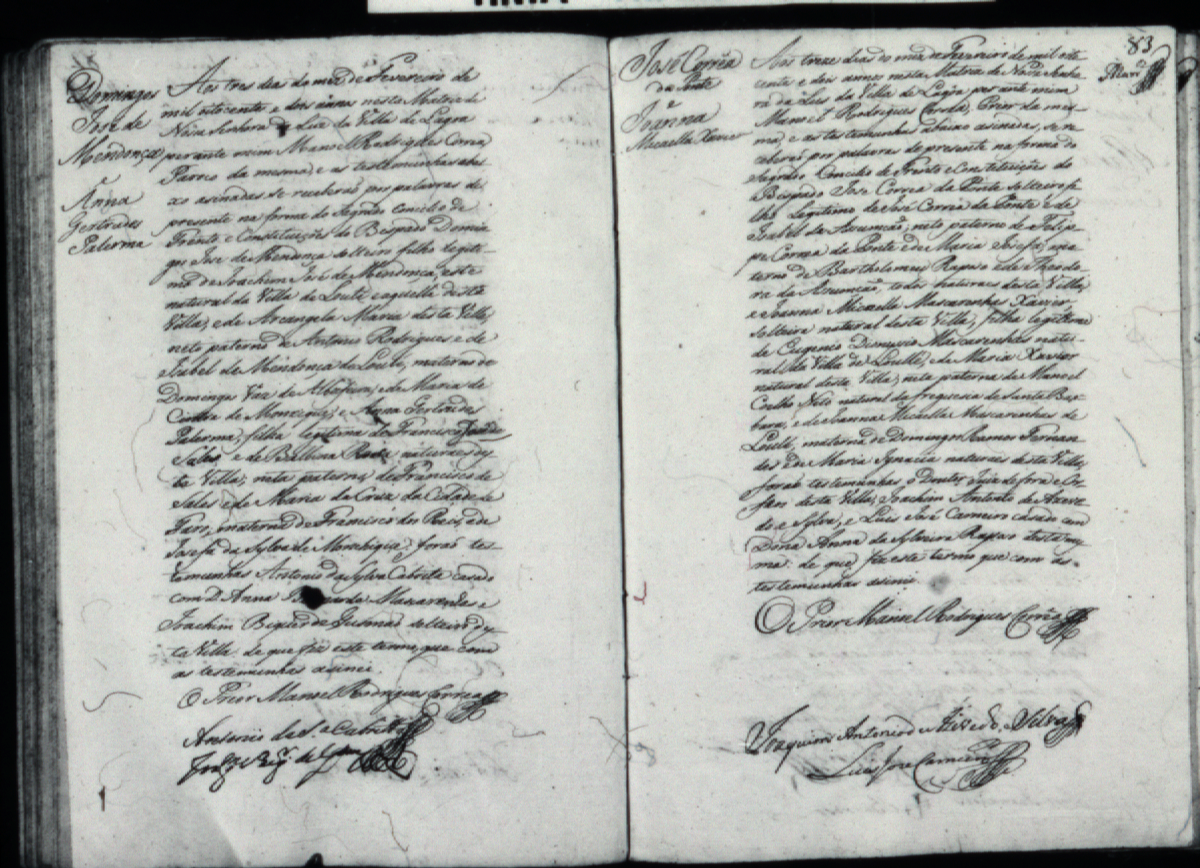 Domingos
José de
Mendonça
Anna
Gertrudes
Palerma
Aos tres dias do mes de Fevereiro de
mil oito cento e dois annos nesta Matris de
Nossa Senhora da Luz da Villa de Lagoa
perante mim Manoel Rodrigues Correa
Parroco da mesma e as testemunhas abai
xo asinadas se receberaõ por palavras de
presente na forma do Sagrado Concilio de
Trento e Constituiçoẽs do Bispado Domin
gos José de Mendonça solteiro filho legiti
mo de Joachim José de Mendonça, este
natural da Villa de Loulé e aquelle desta
Villa, e de Arcangela Maria desta Villa,
neto paterno de Antonio Rodrigues e de
Izabel de Mendonça de Loulé, materno de
Domingos Vaz de Albofeira, e de Maria de
de Monxique, e Anna Gertrudes
Palerma, filha legitima de Francisco
Sales e de naturaes des
ta Villa, neta paterna de Francisco de
Sales e de Maria da Cruz da Cidade de
Faro, materna de Francisco dos Reis, e de
Josefa da Sylva de Monchique: foraõ tes
temunhas Antonio da Sylva Cabrita casado
com D. Anna Mascarenhas e
Joachim de Gusmaõ solteiro des
ta Villa de que fiz este termo, que com
as testemunhas asinei.
O Prior Manoel Rodrigues Correa
Antonio da S.ª Cabrita
83
José Corrêa
da Ponte
Joanna
Micaella Xavier
Aos treze dias do mes de Fevereiro de mil oito
cento e dois annos nesta Matris de Nossa Senho
ra da Luz da Villa de Lagoa perante mim
Manoel Rodrigues Corrêa, Prior da mes
ma, e as testemunhas abaixo asinadas, se re
ceberaõ por palavras de presente na forma do
Sagrado Concilio de Trento e Constituiçoẽs do
Bispado José Correa da Ponte solteiro fi
lho legitimo de José Correa da Ponte e de
Izabel da Asumcaõ, neto paterno de Felip
pe Correa da Ponte e de Maria Josefa, ma
terno de Bartholemeu Raposo e de Theodo
ra da Asumcaõ, todos naturaes desta Villa,
e Joanna Micaella Mascarenhas Xavier
solteira natural desta Villa, filha legitima
de Eugenio Dionysio Mascarenhas natu
ral da Villa de Loullé, e de Maria Xavier
natural desta Villa, neta paterna de Manoel
Coelho Neto natural da freguesia de Santa Bar
bara, e de Joanna Micaella Mascarenhas de
Loullé, materna de Domingos Ramos Fernan
des e de Maria Ignacia naturaes desta Villa,
foraõ testemunhas o Doutor Juis de fora e Or
faos desta Villa, Joachim Antonio de Azeve
do e Sylva, e Luis José Carneiro casado com
Dona Anna da Sylveira Raposo desta mes
ma: de que fiz este termo que com as
testemunhas asinei.
O Prior Manoel Rodrigues Corrêa
Joaquim Antonio d'Azevedo e Silva
Luis Jose Carneiro